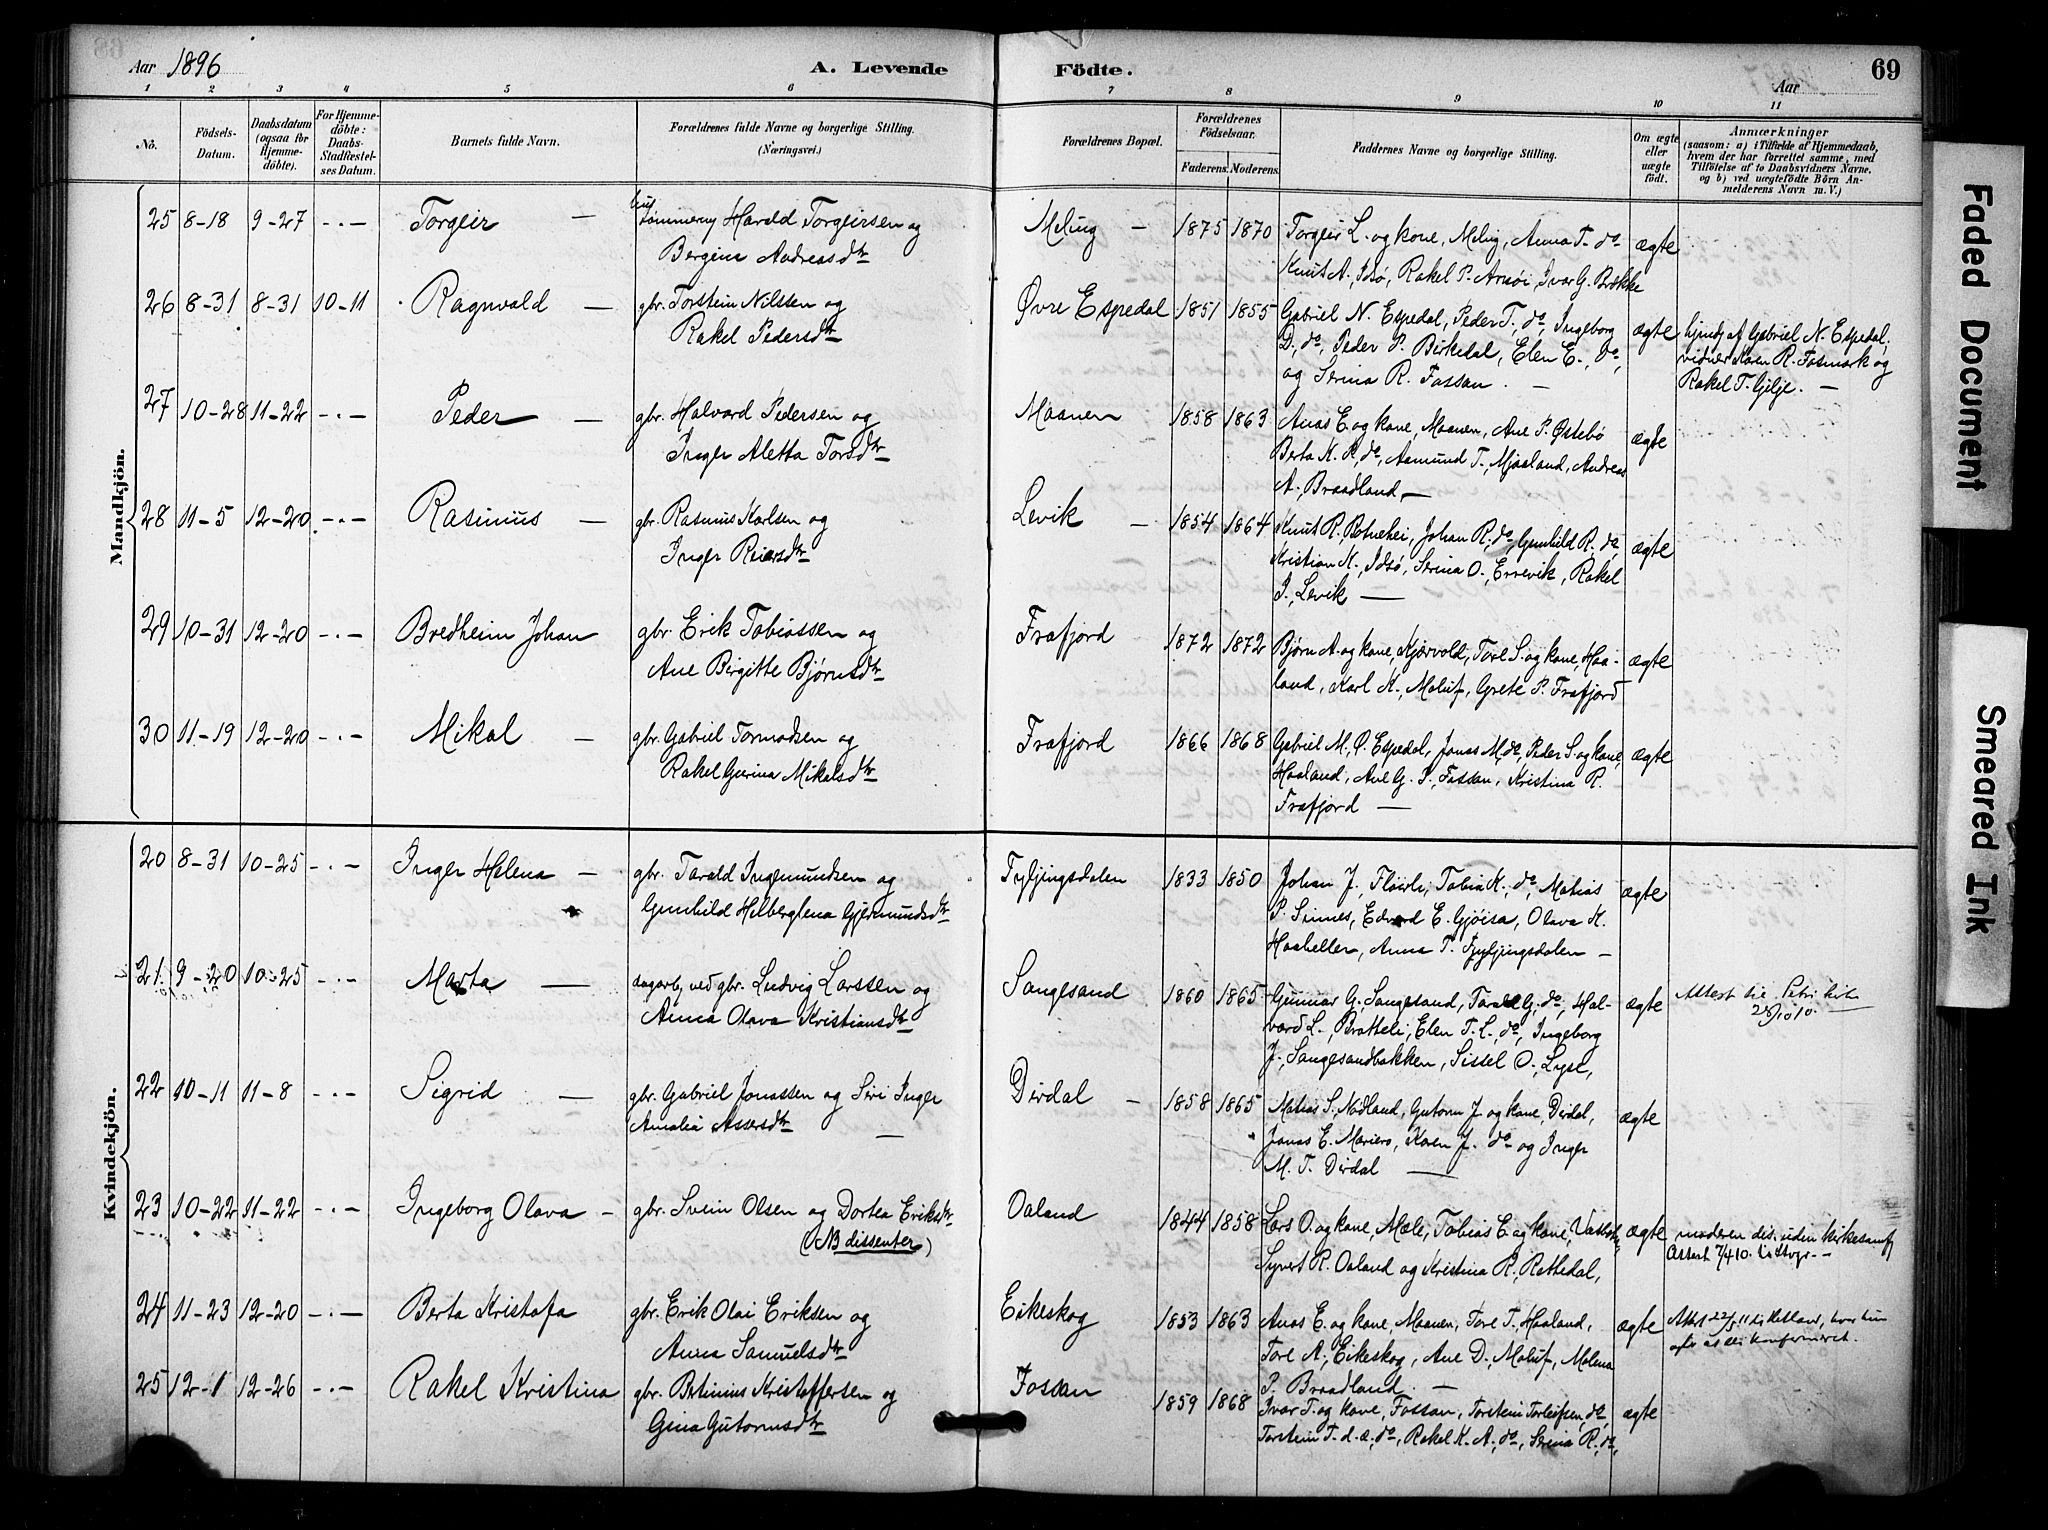 Aar 1896 A. Levende Födte. Aar 69
1 2 3 4 5 6 7 8 9 10 11
No. Födsels-Datum. Daabsdatum (ogsaa for Hjemmedöbte). For Hjemmedöbte: Daabs-Stadfæstelses Datum. Barnets fulde Navn. Forældrenes fulde Navne og borgerlige Stilling. (Næringsvei.) Forældrenes Bopæl. Forældrenes Födselsaar. Faderens. Moderens. Faddernes Navne og borgerlige Stilling. Om ægte eller uægte født. Anmærkninger (saasom: a) i Tilfælde af Hjemmedaab, hvem der har forrettet samme, med Tilföielse af to Daabsvidners Navne, og b) ved uægtefödte Börn Anmelderens Navn m. V.)
Mandkjön.
25 8-18 9-27 -.- Torgeir — Tømmerm Harald Torgeirsen og Meling — 1875 1870 Torgeir L. og kone, Meling, Anna T. do ægte
Bergina Andreasdtr Knut A, Idsø, Rakel P. Arnøi, Ivar G. Brekke
26 8-31 8-31 10-11 Ragnvald — gbr. Torstein Nilssen og Øvre Espedal 1851 1855 Gabriel N. Espedal, Peder T, do, Ingeborg ægte hjmdp af Gabriel N. Espedal,
Rakel Pedersdtr D, do, Peder P. Birkedal, Elen E., do, vidner Karen R. Fosmark og
og Serina R. Fossan. — Rakel T. Gilje. —
27 10-28 11-22 -.- Peder — gbr. Halvard Pedersen og Maanen 1858 1863 Anas E. og kone, Maanen, Ane P. Østebø ægte
Inger Aletta Torsdtr Berta K. P., do, Aamund T., Mjaaland, Andreas
A., Braadland —
28 11-5 12-20 -.- Rasmus — gbr. Rasmus Karlsen og Levik — 1854 1864 Knut R., Botnehei, Johan R. do, Gunhild R., do, ægte
Inger Reiersdtr Kristian K., Idsø, Serina O., Errevik, Rakel
J., Levik —
29 10-31 12-20 -.- Bredheim Johan gbr. Erik Tobiassen og Frafjord 1872 1872 Bjørn A. og kone, Kjørvold, Tore S. og kone, Haa- ægte
Ane Birgitte Bjørnsdtr land, Karl K., Moluf, Grete P. Frafjord
30 11-19 12-20 -.- Mikal — gbr. Gabriel Tormodsen og Frafjord 1866 1868 Gabriel M. Ø. Espedal, Jonas M. do, Peder S. og kone, ægte
Rakel Gurina Mikalsdtr Haaland, Ane G. P., Fossan, Kristina R.
Frafjord —
Kvindekjön.
20 8-31 10-25 -.- Inger Helena — gbr. Tarald Ingemundsen og Fyljingsdalen 1833 1850 Johan J. Fløirli, Tobia K., do, Matias ægte
Gunhild Helberglena Gjermundsdtr P. Sinnes, Edvard E. Gjøisa, Olava K.
Haaheller, Anna T. Fyljingsdalen —
21. 9-20 10-25 -.- Marta — dagarb, ved gbr. Ludvig Larssen og Songesand 1860 1865 Gunnar G., Songesand, Tarald G., do, Hal- ægte Attest til Petri
Anna Olava Kristiansdtr vard L., Bratteli, Elen T. L., do, Ingeborg
J., Songesandbakken, Sissel O., Lyse,
22 10-11 11-8 -.- Sigrid — gbr. Gabriel Jonassen og Siri Inger Dirdal — 1858 1865 Matias S., Nødland, Gutorm J. og kone, Dirdal, ægte
Amalia Assersdtr — Jonas E. Mariero, Karen J. do og Inger
M. T. Dirdal —
23 10-22 11-22 -.- Ingeborg Olava — gbr. Svein Olsen og Dortea Eriksdtr Oaland 1844 1858 Lars O. og kone, Mæle, Tobias E. og kone, ægte moderen dis. uden kirkesamf
(NB dissenter) Syvert R. Oaland og Kristina R., Rettedal, Attest 7/4 10.
24 11-23 12-20 -.- Berta Kristofa gbr. Erik Olai Eriksen og Eikeskog 1853 1863 Anas E. og kone, Maanen, Tore T., Haaland, ægte Attest 22/5 11 til Hetland, hvor hun
Anna Samuelsdtr Tore A., Eikeskog, Ane D., Moluf, Malena konfirmeret.
P. Braadland. —
25 12-1 12-26 -.- Rakel Kristina gbr. Betinius Kristoffersen og Fossan 1859 1868 Ivar T. og kone, Fossan, Torstein Torleifsen, do, ægte
Gina Gutormsdtr Torstein T. d. æ, do, Rakel K. A., do, Serina R., do,
Faded Document
Smeared Ink